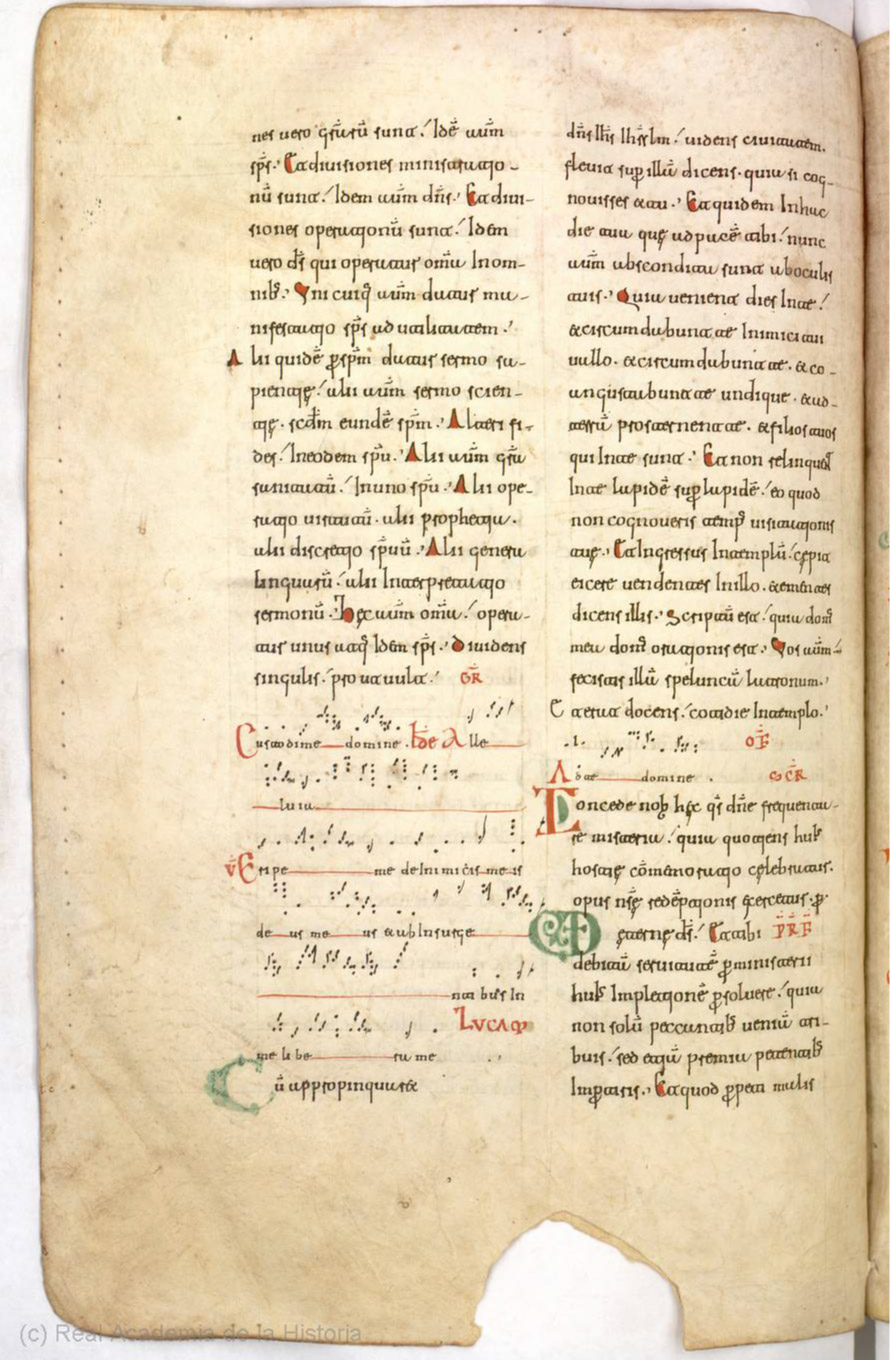 nes vero gr̄arū sunt. Idē aūm
sp̄s. Et diuisiones ministratio-
nū sunt. Idem aūm dn̄s. Et diui-
siones operationū sunt. Idem
uero ds̄ qui operatur om̄a In om-
nib; Vni cuiq̄ aūm datur ma-
nifestatio sp̄s ad utilitatem.
Alii quidē ꝑ sp̄m datur sermo sa-
pientię. alii aūm sermo scien-
tię. scd̄m eundē sp̄m. Alteri fi-
des. In eodem sp̄u. Alii aūm gr̄a
sanitatū. In uno sp̄u. Alii ope-
ratio uirtutū. alii prophetia.
alii discretio sp̄uū. Alii genera
linguarū. alii Interpretatio
sermonū. hęc aūm om̄a. opera-
tur unus atq̄ Idem sp̄s. Diuidens
singulis. pro ut uult. GR̄
Custodi me domine. Alle
luia
V̄ Eripe me de Inimicis meis
deus meus et ab Insurge
ntibus In
LVCAM
me libera me
Cū appropinquaret
dn̄s Ih̄s Ihr̄slm. uidens ciuitatem.
fleuit sup illā dicens. quia si cog-
nouisses et tu. Et quidem In hac
die tua quę ad pacē tibi. nunc
aūm abscondita sunt ab oculis
tuis. Quia uenient dies In te.
et circumdabunt te Inimici tui
uallo. et circumdabunt te. et co-
angustabunt te undique. et ad-
terrā prosternent te. et filios tuos
qui In te sunt. Et non relinquent
In te lapidē sup lapidē. eo quod
non cognoueris temp; uisitationis
tuę. Et Ingressus In templū. cępit
eicere uendentes In illo. et ementes
dicens illis. Scriptū est. quia dom;
mea dom; orationis est. Vos aūm
fecistis illā speluncā latronum.
Et erat docens. cotidie In templo.
OF̄
Ab te domine. SCR̄
Concede nob hęc qs̄ dn̄e frequenta-
re misteria. quia quotiens hui;
hostię cōmemoratio cęlebratur.
opus nr̄ę redēptionis ęxercetur. ꝑ
VD ęterne ds̄. Et tibi PRF̄
debitā seruitutē ꝑ ministerii
hui; Impletionē ꝑsoluere. quia
non solū peccantib; ueniā tri-
buis. sed etiā premia petentib;
Impertiris. Et quod ꝑpeti malis
(c) Real Academia de la Historia